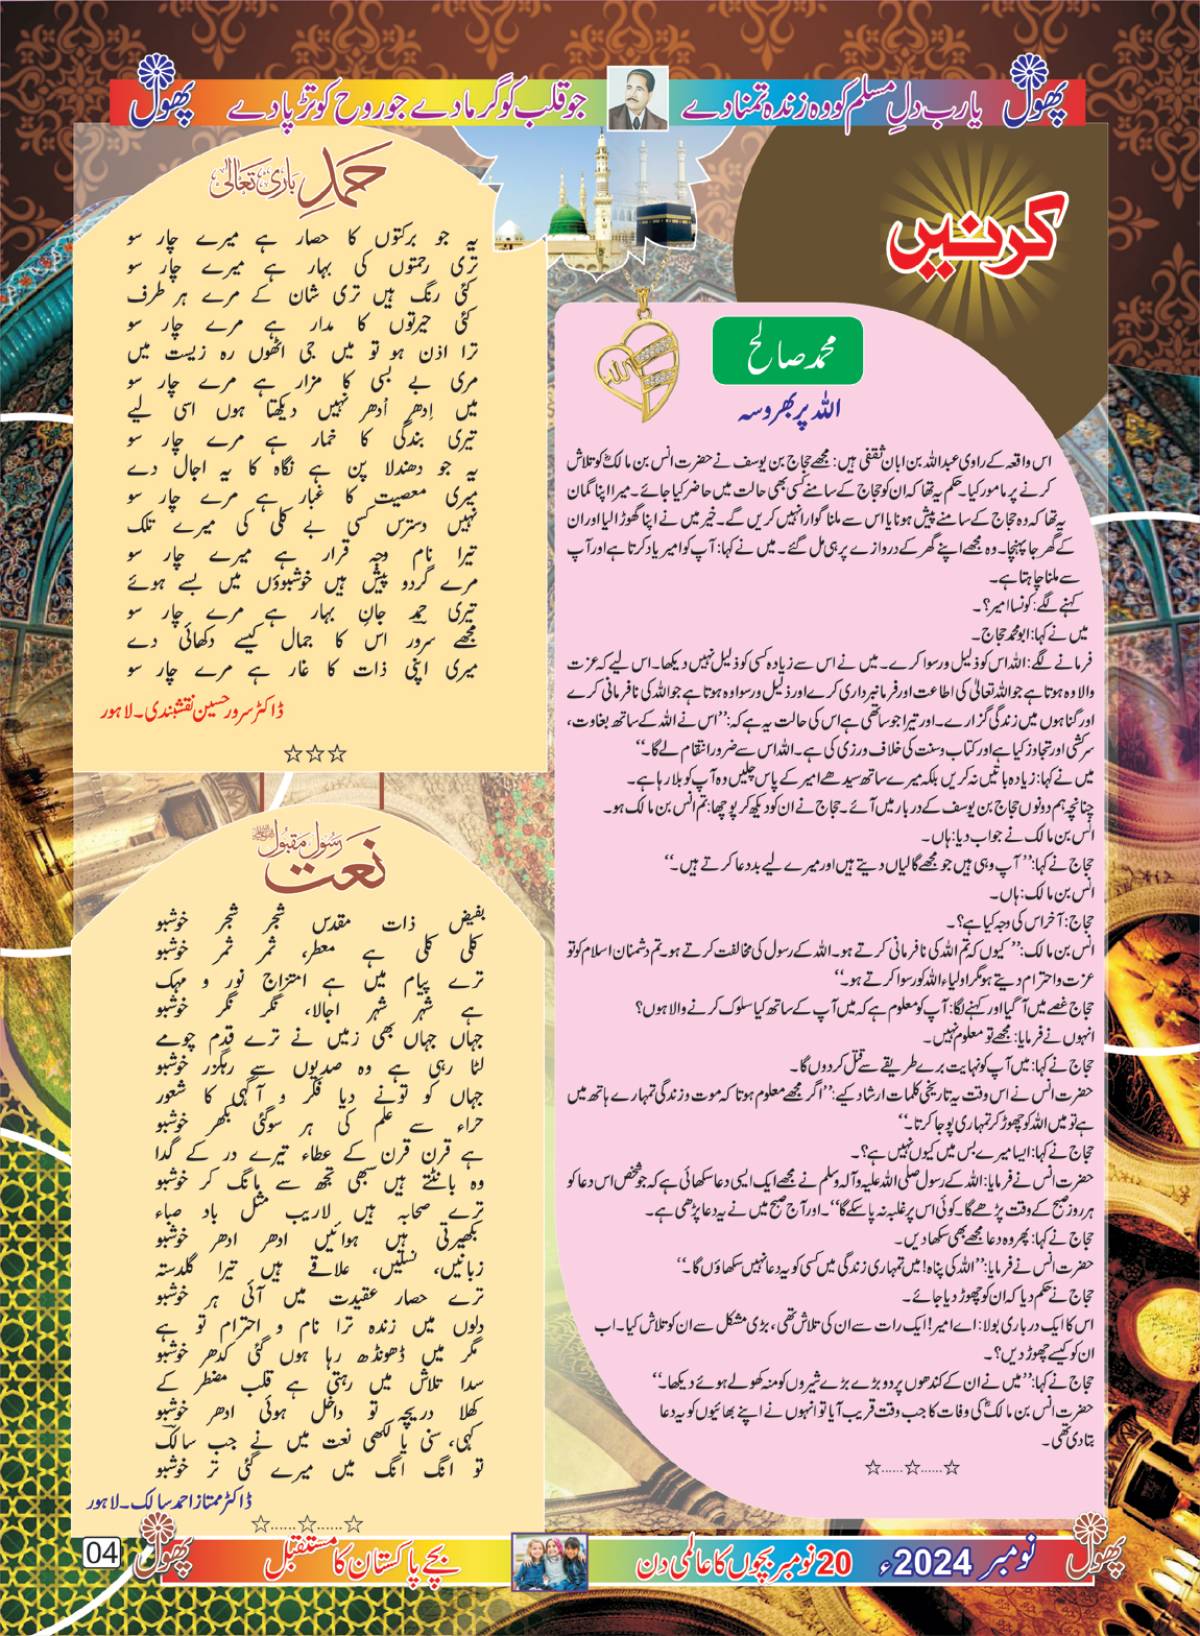 پھول
یارب دلِ مسلم کو وہ زندہ تمنا دے
جو قلب کو گرما دے جو روح کو تڑپا دے
پھول
کرنیں
محمد صالح
اللہ
اللہ پر بھروسہ
اس واقعہ کے راوی عبداللہ بن ابان ثقفی ہیں: مجھے حجاج بن یوسف نے حضرت انس بن مالکؓ کو تلاش
کرنے پر مامور کیا۔ حکم یہ تھا کہ ان کو حجاج کے سامنے کسی بھی حالت میں حاضر کیا جائے۔ میرا اپنا گمان
یہ تھا کہ وہ حجاج کے سامنے پیش ہونا یا اس سے ملنا گوارا نہیں کریں گے۔ خیر میں نے اپنا گھوڑا لیا اور ان
کے گھر جا پہنچا۔ وہ مجھے اپنے گھر کے دروازے پر ہی مل گئے۔ میں نے کہا: آپ کو امیر یاد کرتا ہے اور آپ
سے ملنا چاہتا ہے۔
کہنے لگے: کونسا امیر؟۔
میں نے کہا: ابو محمد حجاج۔
فرمانے لگے: اللہ اس کو ذلیل و رسوا کرے۔ میں نے اس سے زیادہ کسی کو ذلیل نہیں دیکھا۔ اس لیے کہ عزت
والا وہ ہوتا ہے جو اللہ تعالیٰ کی اطاعت اور فرمانبرداری کرے اور ذلیل و رسوا وہ ہوتا ہے جو اللہ کی نافرمانی کرے
اور گناہوں میں زندگی گزارے۔ اور تیرا جو ساتھی ہے اس کی حالت یہ ہے کہ: ’’اس نے اللہ کے ساتھ بغاوت،
سرکشی اور تجاوز کیا ہے اور کتاب و سنت کی خلاف ورزی کی ہے۔ اللہ اس سے ضرور انتقام لے گا۔‘‘
میں نے کہا: زیادہ باتیں نہ کریں بلکہ میرے ساتھ سیدھے امیر کے پاس چلیں وہ آپ کو بلا رہا ہے۔
چنانچہ ہم دونوں حجاج بن یوسف کے دربار میں آئے۔ حجاج نے ان کو دیکھ کر پوچھا: تم انس بن مالک ہو۔
انس بن مالک نے جواب دیا: ہاں۔
حجاج نے کہا: ’’آپ وہی ہیں جو مجھے گالیاں دیتے ہیں اور میرے لیے بددعا کرتے ہیں۔‘‘
انس بن مالک: ہاں۔
حجاج: آخر اس کی وجہ کیا ہے؟۔
انس بن مالک: ’’کیوں کہ تم اللہ کی نافرمانی کرتے ہو۔ اللہ کے رسول کی مخالفت کرتے ہو۔ تم دشمنان اسلام کو تو
عزت و احترام دیتے ہو مگر اولیاء اللہ کو رسوا کرتے ہو۔‘‘
حجاج غصے میں آ گیا اور کہنے لگا: آپ کو معلوم ہے کہ میں آپ کے ساتھ کیا سلوک کرنے والا ہوں؟
انہوں نے فرمایا: مجھے تو معلوم نہیں۔
حجاج نے کہا: میں آپ کو نہایت برے طریقے سے قتل کر دوں گا۔
حضرت انس نے اس وقت یہ تاریخی کلمات ارشاد کیے: ’’اگر مجھے معلوم ہوتا کہ موت و زندگی تمہارے ہاتھ میں
ہے تو میں اللہ کو چھوڑ کر تمہاری پوجا کرتا۔‘‘
حجاج نے کہا: ایسا میرے بس میں کیوں نہیں ہے؟۔
حضرت انس نے فرمایا: اللہ کے رسول صلی اللہ علیہ وآلہ وسلم نے مجھے ایک ایسی دعا سکھائی ہے کہ جو شخص اس دعا کو
ہر روز صبح کے وقت پڑھے گا۔ کوئی اس پر غلبہ نہ پا سکے گا‘‘۔ اور آج صبح میں نے یہ دعا پڑھی ہے۔
حجاج نے کہا: پھر وہ دعا مجھے بھی سکھا دیں۔
حضرت انس نے فرمایا: ’’اللہ کی پناہ! میں تمہاری زندگی میں کسی کو یہ دعا نہیں سکھاؤں گا۔‘‘
حجاج نے حکم دیا کہ ان کو چھوڑ دیا جائے۔
اس کا ایک درباری بولا: اے امیر! ایک رات سے ان کی تلاش تھی، بڑی مشکل سے ان کو تلاش کیا۔ اب
ان کو کیسے چھوڑ دیں؟۔
حجاج نے کہا: ’’میں نے ان کے کندھوں پر دو بڑے بڑے شیروں کو منہ کھولے ہوئے دیکھا۔‘‘
حضرت انس بن مالکؓ کی وفات کا جب وقت قریب آیا تو انہوں نے اپنے بھائیوں کو یہ دعا
بتا دی تھی۔
☆......☆......☆
حمدِ باری تعالیٰ
یہ جو برکتوں کا حصار ہے میرے چار سو
تری رحمتوں کی بہار ہے میرے چار سو
کئی رنگ ہیں تری شان کے مرے ہر طرف
کئی حیرتوں کا مدار ہے مرے چار سو
ترا اذن ہو تو میں جی اٹھوں رہ زیست میں
مری بے بسی کا مزار ہے مرے چار سو
میں اِدھر اُدھر نہیں دیکھتا ہوں اسی لیے
تیری بندگی کا خمار ہے مرے چار سو
یہ جو دھندلا پن ہے نگاہ کا یہ اجال دے
میری معصیت کا غبار ہے مرے چار سو
نہیں دسترس کسی بے کلی کی میرے تلک
تیرا نام وجہِ قرار ہے میرے چار سو
مرے گردو پیش ہیں خوشبوؤں میں بسے ہوئے
تیری حمد جانِ بہار ہے مرے چار سو
مجھے سرور اس کا جمال کیسے دکھائی دے
میری اپنی ذات کا غار ہے مرے چار سو
ڈاکٹر سرور حسین نقشبندی۔ لاہور
☆☆☆
نعت رسول مقبول ﷺ
بفیض ذات مقدس شجر شجر خوشبو
کلی کلی ہے معطر، ثمر ثمر خوشبو
ترے پیام میں ہے امتزاج نور و مہک
ہے شہر شہر اجالا، نگر نگر خوشبو
جہاں جہاں بھی زمیں نے ترے قدم چومے
لٹا رہی ہے وہ صدیوں سے رہگزر خوشبو
جہاں کو تونے دیا فکر و آگہی کا شعور
حراء سے علم کی ہر سوگئی بکھر خوشبو
ہے قرن قرن کے عطاء تیرے در کے گدا
وہ بانٹتے ہیں سبھی تجھ سے مانگ کر خوشبو
ترے صحابہ ہیں لاریب مثل باد صباء
بکھیرتی ہیں ہوائیں ادھر ادھر خوشبو
زبانیں، نسلیں، علاقے ہیں تیرا گلدستہ
ترے حصار عقیدت میں آئی ہر خوشبو
دلوں میں زندہ ترا نام و احترام تو ہے
مگر میں ڈھونڈھ رہا ہوں گئی کدھر خوشبو
سدا تلاش میں رہتی ہے قلب مضطر کے
کھلا دریچہ تو داخل ہوئی ادھر خوشبو
کہی، سنی یا لکھی نعت میں نے جب سالکؔ
تو انگ انگ میں میرے گئی تر خوشبو
ڈاکٹر ممتاز احمد سالک۔ لاہور
☆......☆......☆
پھول
نومبر 2024ء
20 نومبر بچوں کا عالمی دن
بچے پاکستان کا مستقبل
پھول
04